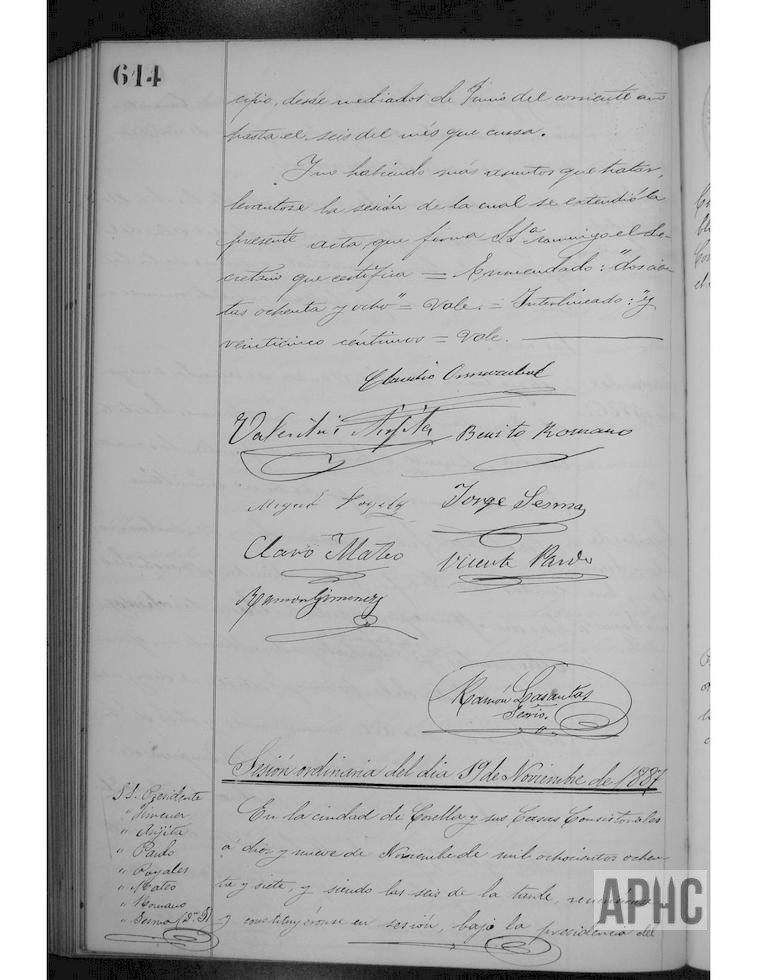 614
cipio, desde mediados de Junio del corriente año
hasta el seis del més que cursa.
Y no habiendo más asuntos que tratar,
levantose la sesión de la cual se extendió la
presente acta que firma S.Sª conmigo el Se-
cretario que certifica = Enmendado: "doscien-
tas ochenta y ocho" = Vale. = Interlineado: "y
veinticinco céntimos = Vale.
Claudio
Valentin Arjita Benito Romano
Miguel Jorge Sesma
Claro Mateo Vicente Pardo
Ramon Gimenez
Ramón Lasantas
Sesión ordinaria del dia 19 de Noviembre de 1887
S.S. Presidente
" Jimenez
" Arjita
" Pardo
" Poyales
" Mateo
" Romano
" Sesma (D. J)
En la ciudad de Corella y sus Casas Consistoriales
á diez y nueve de Noviembre de mil ochocientos ochen-
ta y siete, y siendo las seis de la tarde,
y constituyéronse en sesión, bajo la presidencia del
APHC